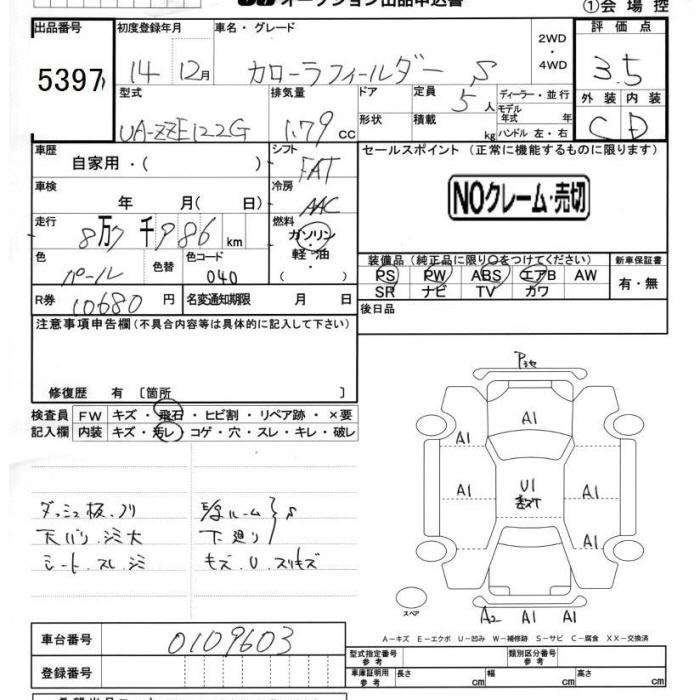 オークション出品申込書
①会場控
出品番号
5397
初度登録年月
14年 12月
車名・グレード
カローラフィールダー S
2WD
・
4WD
評価点
3.5
外装 内装
C D
型式
UA-ZZE122G
排気量
1.79 cc
ドア
形状
定員 5人
積載 kg
ディーラー・並行
モデル年式 年
ハンドル 左・右
車歴
自家用・( )
シフト
FAT
車検
年 月( 日)
冷房
AAC
走行
8万7千986 km
燃料
ガソリン
・
軽・油
・( )
色
パール
色替
色コード
040
R券 10680円
名変通知期限 月 日
セールスポイント (正常に機能するものに限ります)
NOクレーム・売切
装備品(純正品に限り○をつけてください)
PS PW ABS エアB AW
SR ナビ TV カワ
新車保証書
有・無
後日品
注意事項申告欄(不具合内容等は具体的に記入して下さい)
修復歴 有 〔箇所 〕
検査員
記入欄
FW キズ・飛石・ヒビ割・リペア跡・×要
内装 キズ・汚レ・コゲ・穴・スレ・キレ・破レ
天バリ.シミ大
シート.スレ.シミ
ルーム
下廻り
S
キズ.U.スリキズ
A1
A1
A1
A1
U1
A1
A1
A2 A1 A1
スペア
A-キズ E-エクボ U-凹み W-補修跡 S-サビ C-腐食 XX-交換済
車台番号 0109603
登録番号
型式指定番号
参考
類別区分番号
参考
車庫証明用
参考
長さ cm 幅 cm 高さ cm